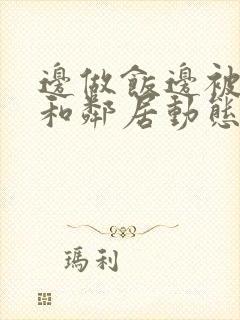 邊做飯邊被
和鄰居動態
瑪利